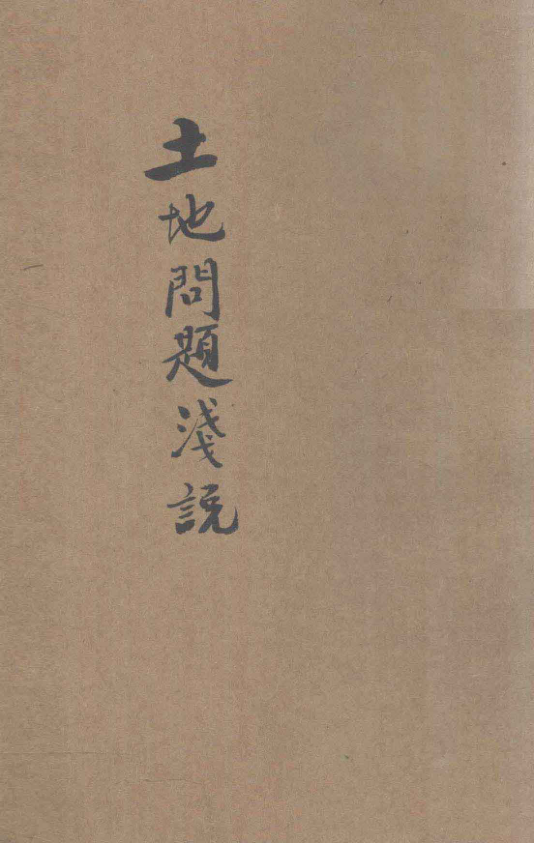 土地問題淺説